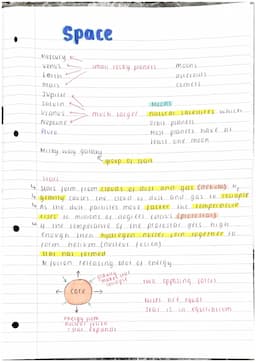 Space
Mercury
Venus
Earth
Mars
small rocky planets
moons
asteroids
comets
Jupiter
Saturn
Uranus
Neptune
Pluto
much larger
Moons
natural satellites which
orbit planets
Most planets have at
least one moon
Milky way galaxy
group of stars
Stars
Stars form from clouds of dust and gas (nebula)
causes the cloud of dust and gas to collapse
As the dust particles move faster the temperature
rises to millions of degrees celsius (protostar)
If the temperature of the protostar gets high
enough then hydrogen nuclei join together to
form helium (nuclear fusion)
Star has formed
fusion releasing lots of energy
core
two opposing forces
forces are equal
star is in equilibrium
star expands